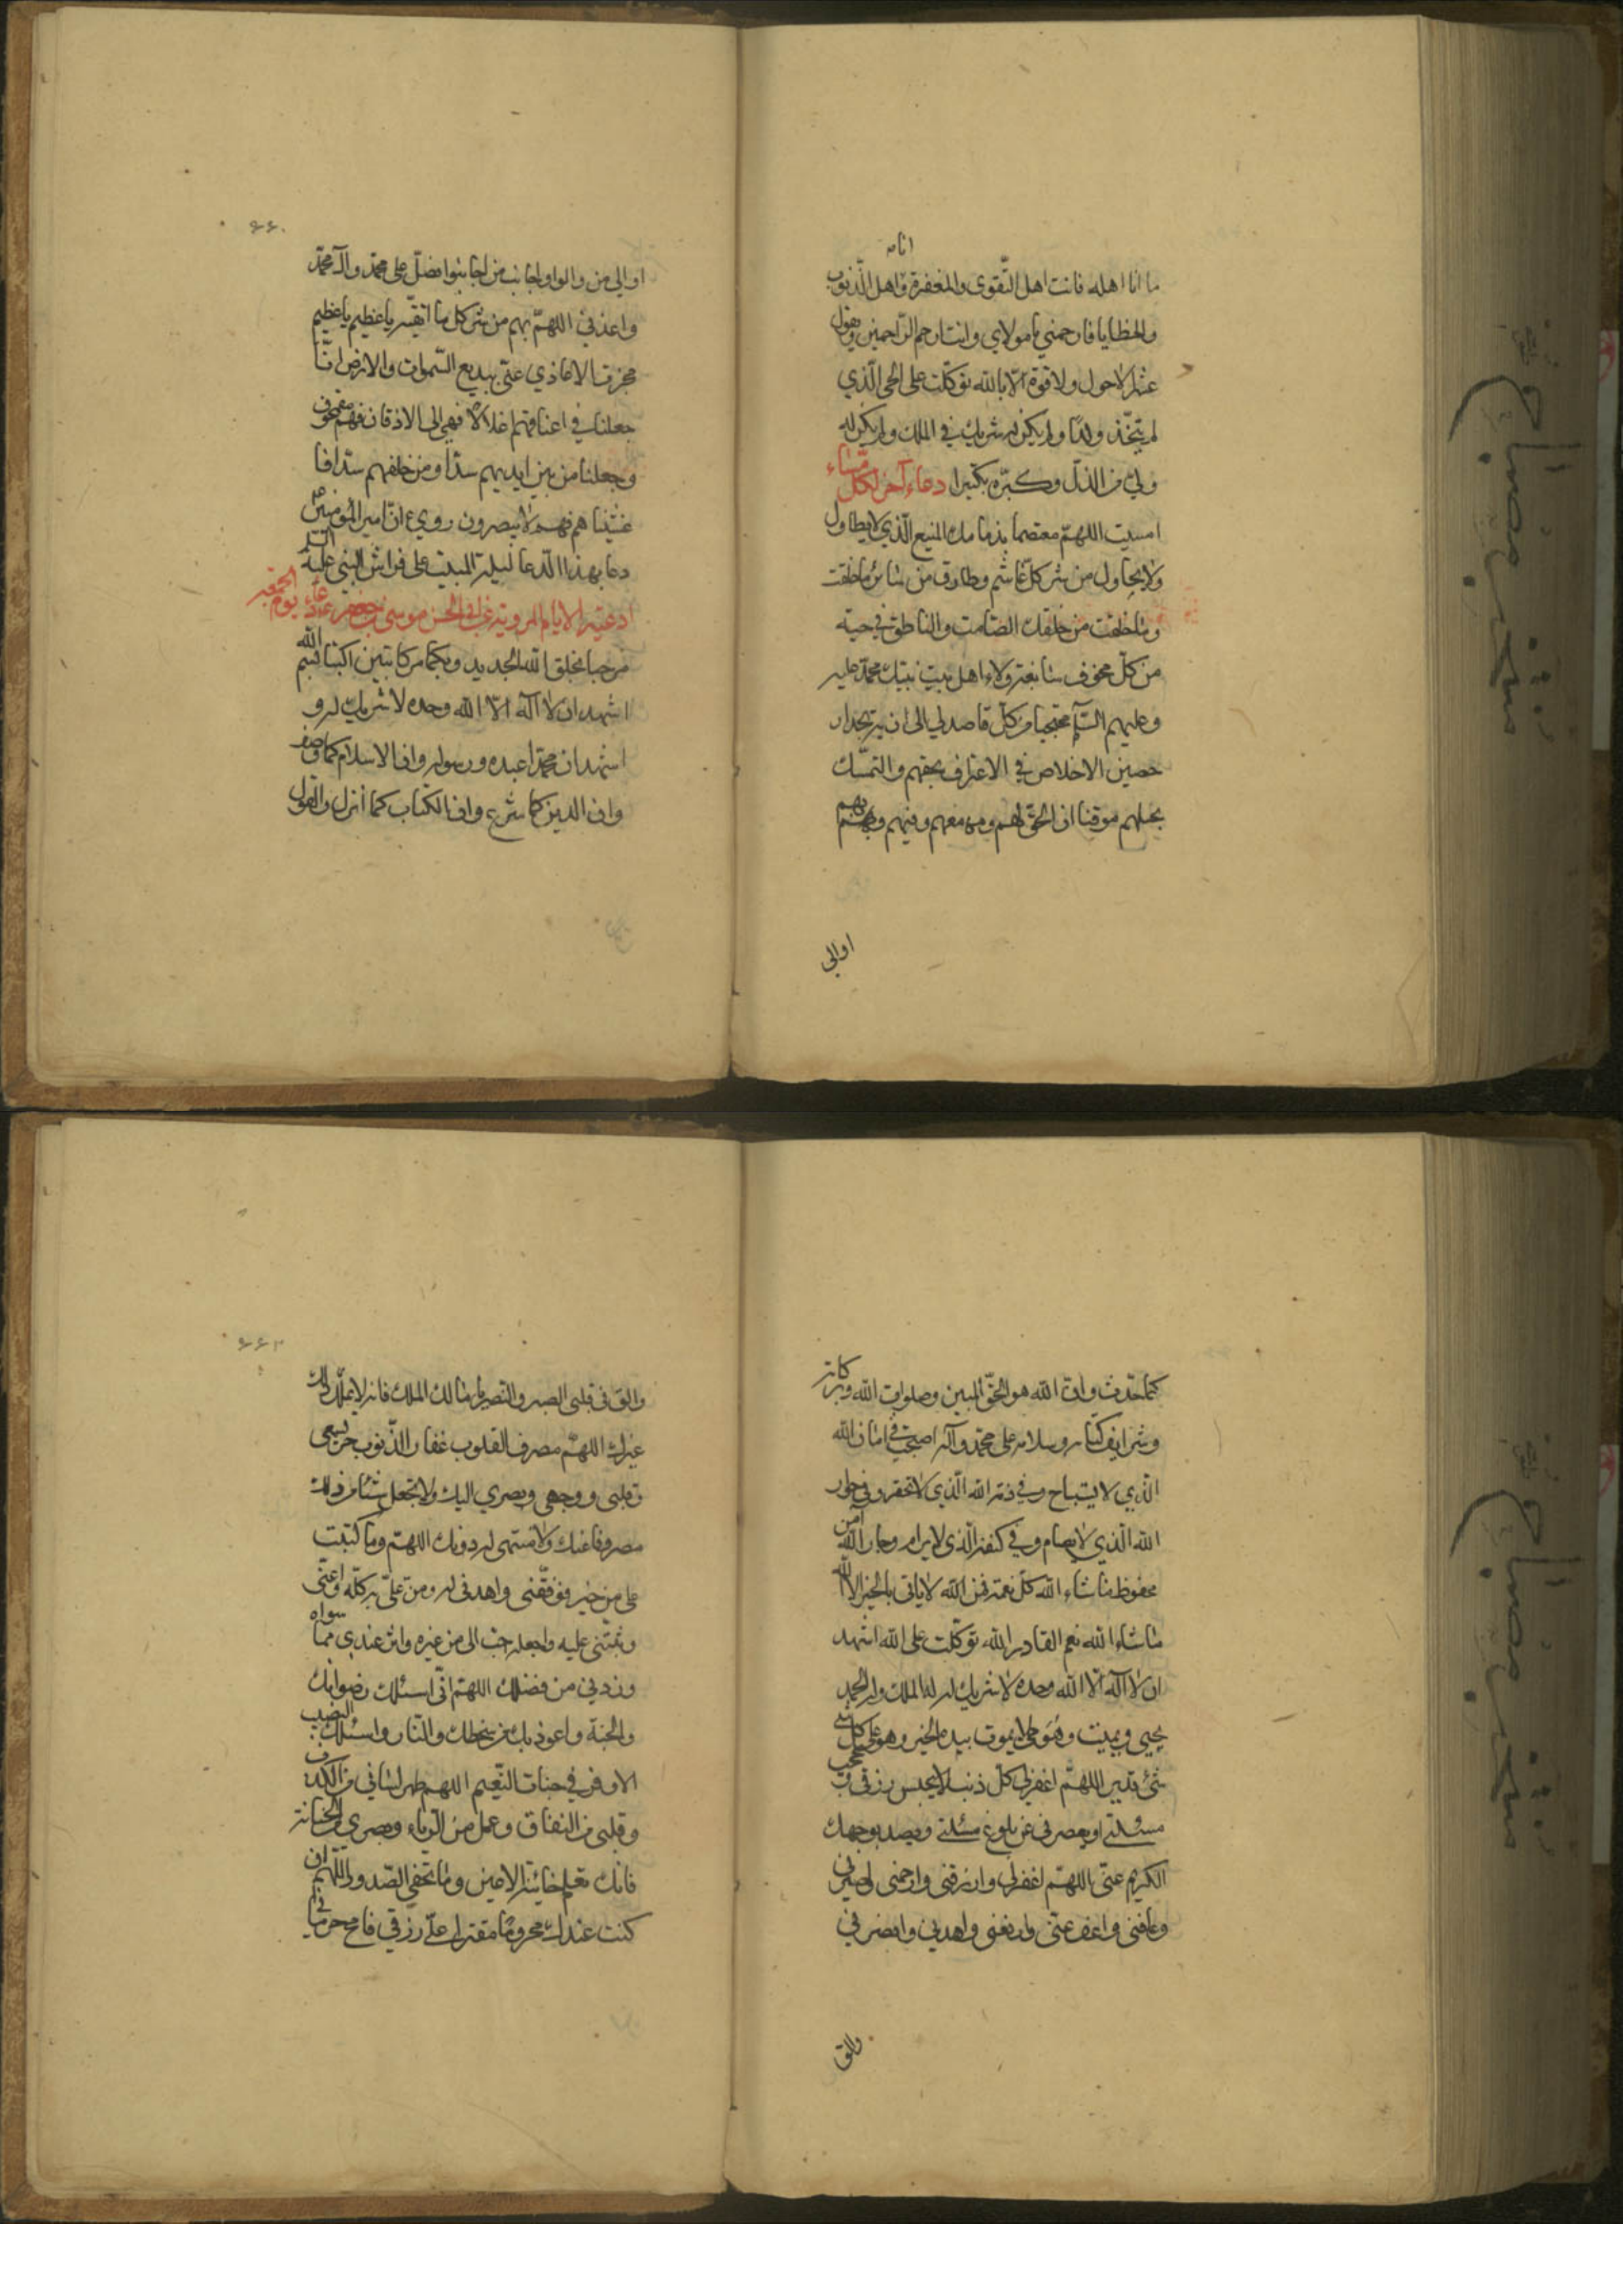 انا
ما انا اهله فانت اهل التّقوى والمغفرة واهل الذّنوب
والخطايا فارحمني يا مولاي وانت ارحم الرّاحمين وتقول
عشرا لاحول ولا قوة الّا بالله توكّلت على الحى الّذي
لم يتّخذ ولدا ولم يكن له شريك في الملك ولم يكن له
ولي من الذلّ وكبّره تكبيرا دعاء آخر لكل مساء
امسيت اللهمّ معتصما بذمامك المنيع الّذي لا يطاول
ولا يحاول من شر كلّ غاشم وطارق من سائر ما خلقت
وما خلقت من خلقك الصّامت والناطق في جنة
من كلّ مخوف سابغة ولاء اهل بيت نبيك محمّد عليه
وعليهم السّلم محتجبا من كلّ قاصد لي الى اذية بجدار
حصين الاخلاص في الاعتراف بحقهم والتمسّك
بحبلهم موقنا ان الحقّ لهم ومعهم وفيهم وبهم
اوالي
٦٦٠
اوالي من والوا واجانب من اجانبوا فصلّ على محمّد وآل محمّد
واعذني اللهمّ بهم من شر كل ما اتّقيه يا عظيم يا عظيم
حجزت الاعادي عنّى ببديع السّموات والارض انّا
جعلنا في اعناقهم اغلالا فهي الى الاذقان فهم مقمحون
وجعلنا من بين ايديهم سدّا ومن خلفهم سدّا فا
غشيناهم فهم لا يبصرون روي انّ امير المؤمنين
دعا بهذا الدّعا ليلة المبيت على فراش النبي عليه السلم
ادعية الايام المروية عن ابى الحسن موسى بن جعفر دعاء يوم الجمعة
مرحبا بخلق الله الجديد وبكما من كاتبين اكتبا بسم الله
اشهد ان لا اله الّا الله وحده لا شريك له و
اشهد ان محمّدا عبده ورسوله وان الاسلام كما وصف
وان الدين كما شرع وان الكتاب كما انزل والقول
كما حدّث وانّ الله هو الحقّ المبين وصلوات الله وبركاته
وشرايف تحياته وسلامه على محمّد وآله اصبحت في امان الله
الّذي لا يستباح وفي ذمة الله الّذي لا تخفر وفي جوار
الله الّذي لا يضام وفي كنفه الّذي لا يرام وجار الله آمن
محفوظ ما شاء الله كلّ نعمة فمن الله لا ياتى بالخير الا الله
ما شاء الله نعم القادر الله توكّلت على الله اشهد
ان لا اله الّا الله وحده لا شريك له له الملك وله الحمد
يحيى ويميت وهو حي لا يموت بيده الخير وهو على كل
شئ قدير اللهمّ اغفر لي كلّ ذنب يحبس رزقي ويحجب
مسئلتى او يقصر بى عن بلوغ مسئلتى ويصد بوجهك
الكريم عنّى اللهمّ اغفر لى وارزقنى وارحمنى واجبرني
وعافنى واعف عنّى وارفعنى واهدنى وانصرني
والق
٦٦١
والق في قلبى الصبر والنصر يا مالك الملك فانه لا يملك ذلك
غيرك اللهمّ مصرف القلوب غفار الذّنوب
قلبى ووجهى وبصري اليك ولا تجعل شيئا من ذلك
مصروفا عنك ولا منتهى له دونك اللهمّ وما كتبت
على من خير فوفّقنى واهدنى له ومن علىّ به كلّه واعنّى
وثبّتنى عليه واجعله احبّ الى من غيره واثر عندي ممّا سواه
وزدني من فضلك اللهمّ انّى اسئلك رضوانك
والجنة واعوذ بك من سخطك والنّار واسئلك النصيب
الاوفر في جنات النّعيم اللهم طهر لساني من الكذب
وقلبى من النفاق وعملى من الرّياء وبصري من الخيانة
فانّك تعلم خائنة الاعين وما تخفي الصّدور اللّهم ان
كنت عندك محروما مقترا علىّ رزقي فامح حرماني